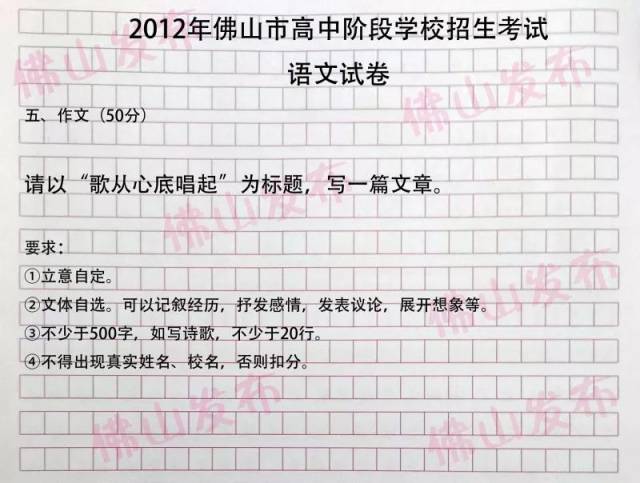 2012年佛山市高中阶段学校招生考试
语文试卷
五、作文（50分）
请以“歌从心底唱起”为标题，写一篇文章。
要求：
①立意自定。
②文体自选。可以记叙经历，抒发感情，发表议论，展开想象等。
③不少于500字，如写诗歌，不少于20行。
④不得出现真实姓名、校名，否则扣分。
佛山发布
佛山发布
佛山发布
佛山发布
佛山发布
佛山发布